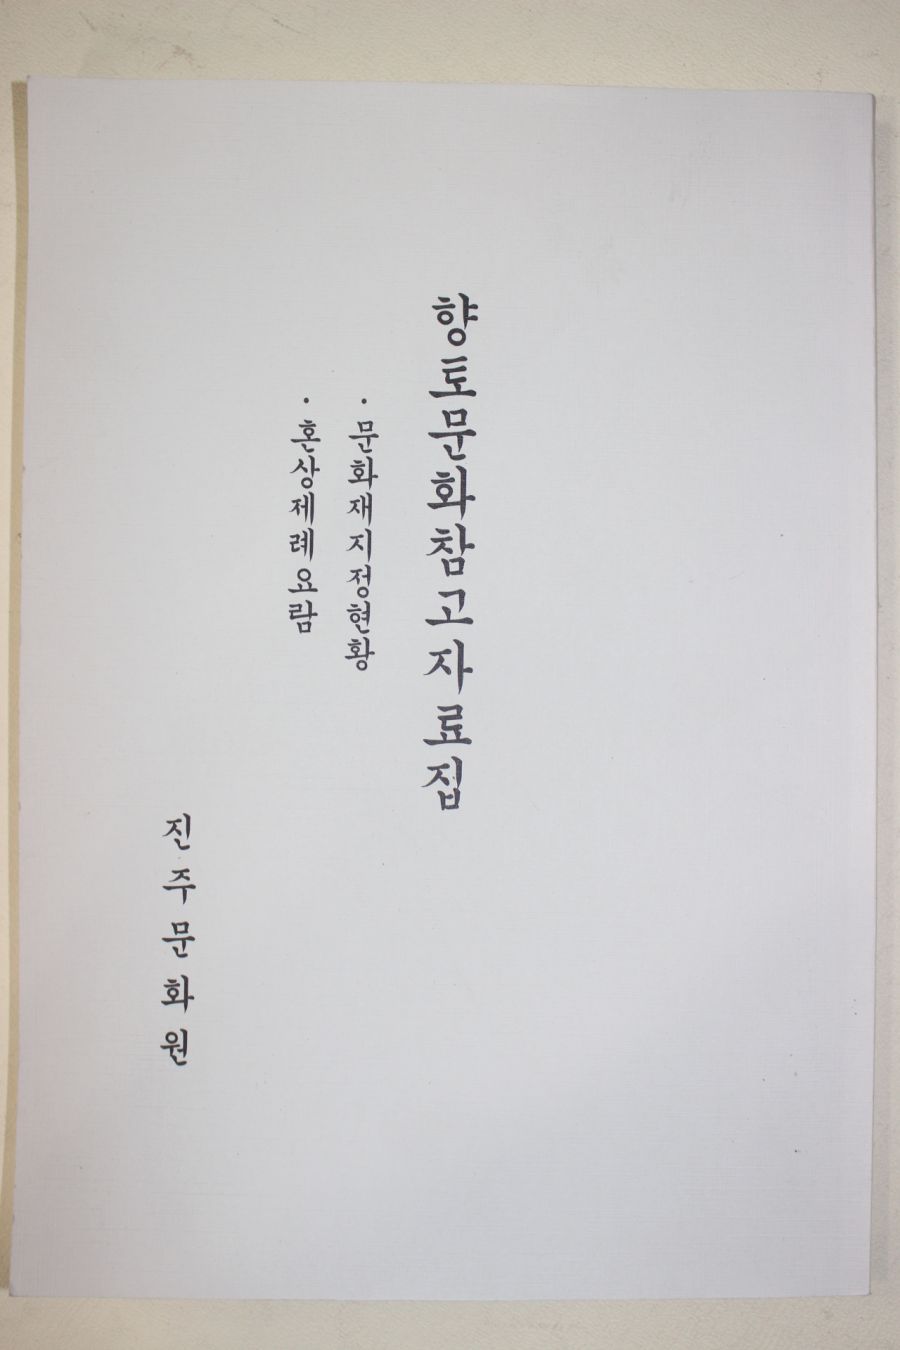 향토문화참고자료집
· 문화재지정현황
· 혼상제례요람
진주문화원